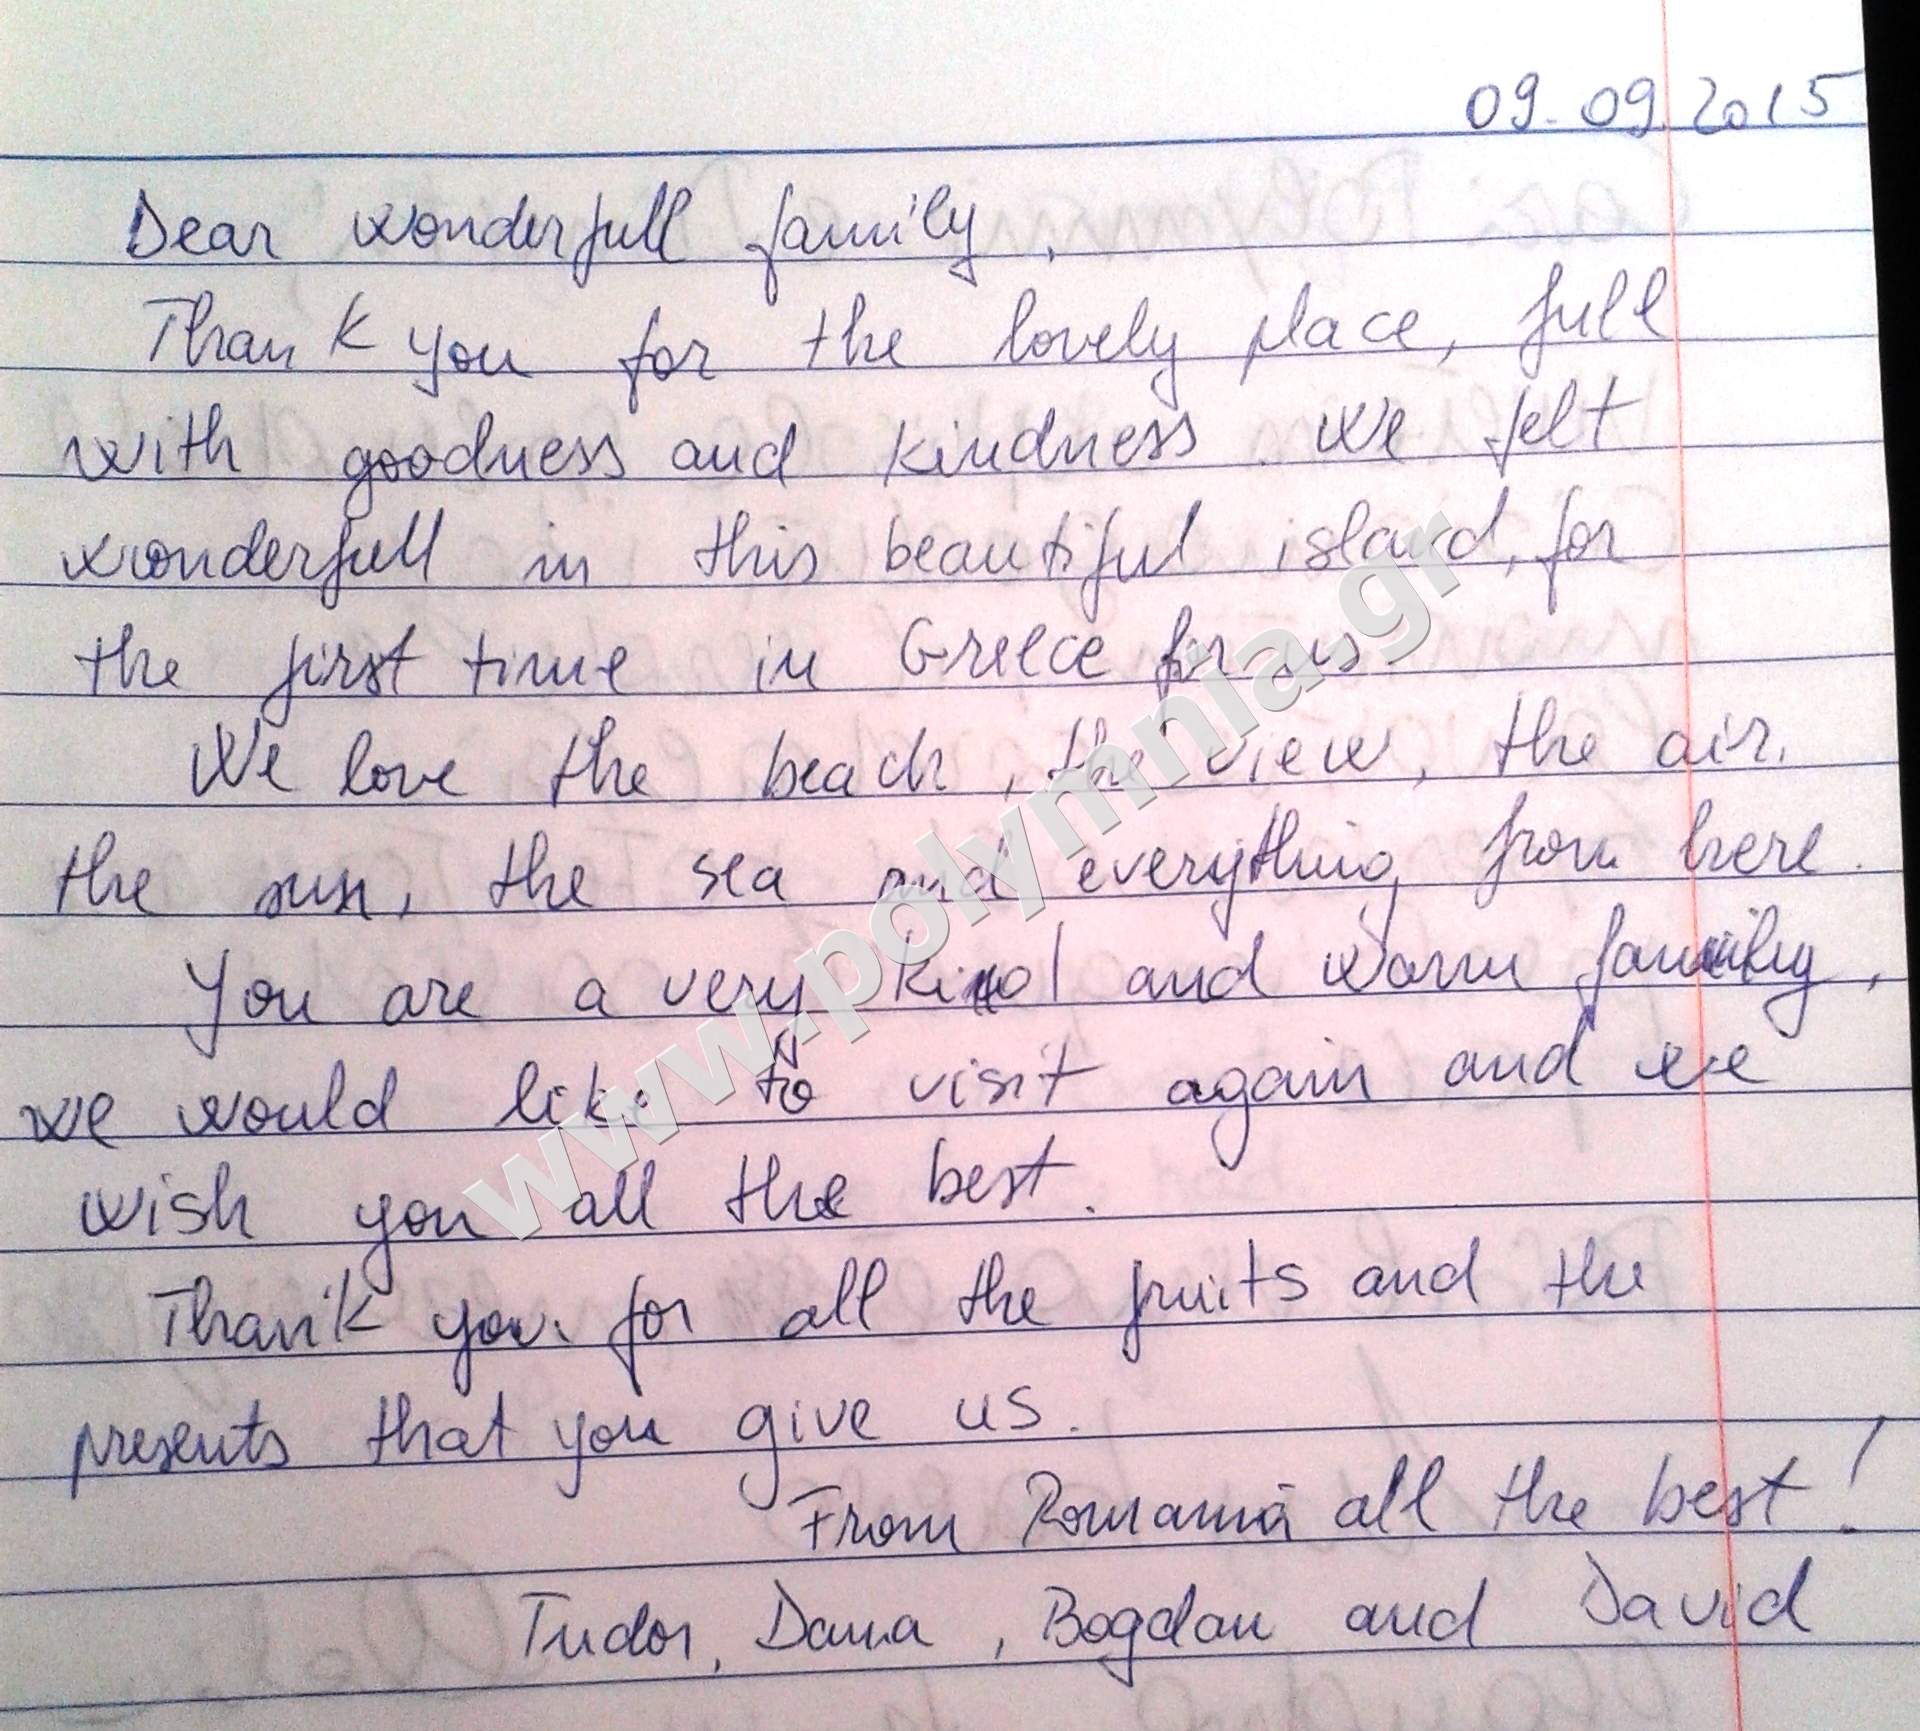 09.09.2015
Dear wonderfull family,
Thank you for the lovely place, full
with goodness and kindness. We felt
wonderfull in this beautiful island, for
the first time in Greece for us.
We love the beach, the view, the air,
the sun, the sea and everything from here.
You are a very kind and warm family,
we would like to visit again and we
wish you all the best.
Thank you for all the fruits and the
presents that you give us.
From Romania all the best!
Tudor, Dana, Bogdan and David
www.polymnia.gr